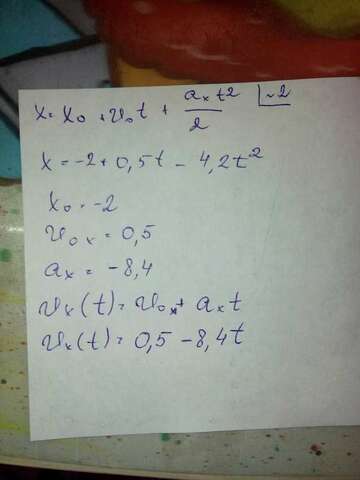 x = x₀ + v₀t + aₓt²/2 |·2
x = -2 + 0,5t - 4,2t²
x₀ = -2
v₀ₓ = 0,5
aₓ = -8,4
vₓ(t) = v₀ₓ + aₓt
vₓ(t) = 0,5 - 8,4t